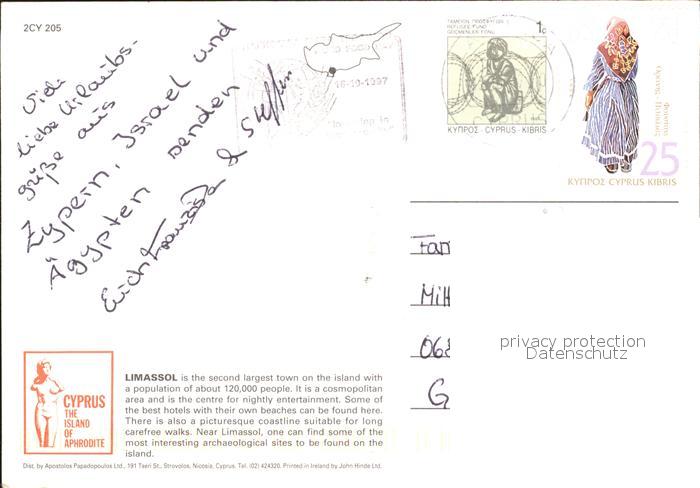 2CY 205
Viele
liebe Urlaubs-
grüße aus
Zypern, Israel und
Ägypten senden
Euch Franziska & Steffen
16-10-1997
ΤΑΜΕΙΟΝ ΠΡΟΣΦΥΓΩΝ
REFUGEE FUND
GÖÇMENLER FONU
1c
ΚΥΠΡΟΣ-CYPRUS-KIBRIS
25
ΚΥΠΡΟΣ CYPRUS KIBRIS
Fam
Mitt
06
G
privacy protection
Datenschutz
CYPRUS
THE
ISLAND
OF
APHRODITE
LIMASSOL is the second largest town on the island with
a population of about 120,000 people. It is a cosmopolitan
area and is the centre for nightly entertainment. Some of
the best hotels with their own beaches can be found here.
There is also a picturesque coastline suitable for long
carefree walks. Near Limassol, one can find some of the
most interesting archaeological sites to be found on the
island.
Dist. by Apostolos Papadopoulos Ltd., 191 Tseri St., Strovolos, Nicosia, Cyprus. Tel. (02) 424320. Printed in Ireland by John Hinde Ltd.